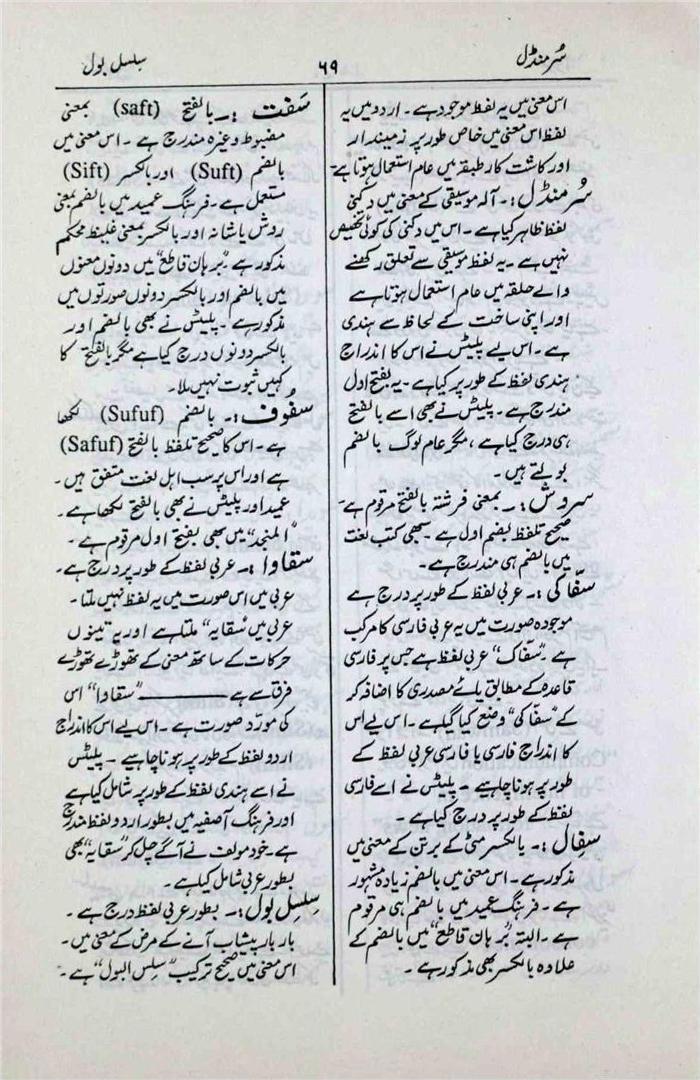 سُرمنڈل
۶۹
سِلسِل بول
اس معنی میں یہ لفظ موجود ہے۔ اردو میں یہ
لفظ اس معنی میں خاص طور پر زمیندار
اور کاشت کار طبقہ میں عام استعمال ہوتا ہے۔
سُرمنڈل :۔ آلہ موسیقی کے معنی میں دکنی
لفظ ظاہر کیا ہے۔ اس میں دکنی کی کوئی تخصیص
نہیں ہے۔ یہ لفظ موسیقی سے تعلق رکھنے
والے حلقہ میں عام استعمال ہوتا ہے
اور اپنی ساخت کے لحاظ سے ہندی
ہے۔ اس لیے پلیٹس نے اس کا اندراج
ہندی لفظ کے طور پر کیا ہے۔ یہ بفتح اول
مندرج ہے۔ پلیٹس نے بھی اسے بالفتح
ہی درج کیا ہے، مگر عام لوگ بالضم
بولتے ہیں۔
سروش :۔ بمعنی فرشتہ بالفتح مرقوم ہے۔
صحیح تلفظ بضم اول ہے۔ سبھی کتب لغت
میں بالضم ہی مندرج ہے۔
سفّاکی :۔ عربی لفظ کے طور پر درج ہے
موجودہ صورت میں یہ عربی فارسی کا مرکب
ہے۔ "سفّاک" عربی لفظ ہے جس پر فارسی
قاعدہ کے مطابق یائے مصدری کا اضافہ کر
کے "سفّاکی" وضع کیا گیا ہے۔ اس لیے اس
کا اندراج فارسی یا فارسی عربی لفظ کے
طور پر ہونا چاہیے۔ پلیٹس نے اسے فارسی
لفظ کے طور پر درج کیا ہے۔
سِفال :۔ بالکسر مٹی کے برتن کے معنی میں
مذکور ہے۔ اس معنی میں بالضم زیادہ مشہور
ہے۔ فرہنگ عمید میں بالضم ہی مرقوم
ہے۔ البتہ "بُرہان قاطع" میں بالضم کے
علاوہ بالکسر بھی مذکور ہے۔
سَفت :۔ بالفتح (saft) بمعنی
مضبوط وغیرہ مندرج ہے۔ اس معنی میں
بالضم (Suft) اور بالکسر (Sift)
مستعمل ہے۔ فرہنگ عمید میں بالضم بمعنی
دوش یا شانہ اور بالکسر بمعنی غلیظ محکم
مذکور ہے۔ "بُرہان قاطع" میں دونوں معنوں
میں بالضم اور بالکسر دونوں صورتوں میں
مذکور ہے۔ پلیٹس نے بھی بالضم اور
بالکسر دونوں درج کیا ہے مگر بالفتح کا
کہیں ثبوت نہیں ملا۔
سُفُوف :۔ بالضم (Sufuf) لکھا
ہے۔ اس کا صحیح تلفظ بالفتح (Safuf)
ہے اور اس پر سب اہل لغت متفق ہیں۔
عمید اور پلیٹس نے بھی بالفتح لکھا ہے۔
"المنجد" میں بھی بفتح اول مرقوم ہے۔
سقاوا :۔ عربی لفظ کے طور پر درج ہے۔
عربی میں اس صورت میں یہ لفظ نہیں ملتا۔
عربی میں "سقایہ" ملتا ہے اور یہ تینوں
حرکات کے ساتھ معنی کے تھوڑے تھوڑے
فرق سے ہے ——— "سقاوا" اس
کی مورّد صورت ہے۔ اس لیے اس کا اندراج
اردو لفظ کے طور پر ہونا چاہیے۔ پلیٹس
نے اسے ہندی لفظ کے طور پر شامل کیا ہے
اور فرہنگ آصفیہ میں بطور اردو لفظ مندرج
ہے۔ خود مولف نے آگے چل کر "سقایہ" بھی
بطور عربی شامل کیا ہے۔
سِلسِل بول :۔ بطور عربی لفظ درج ہے۔
بار بار پیشاب آنے کے مرض کے معنی میں۔
اس معنی میں صحیح ترکیب "سلس البول" ہے۔